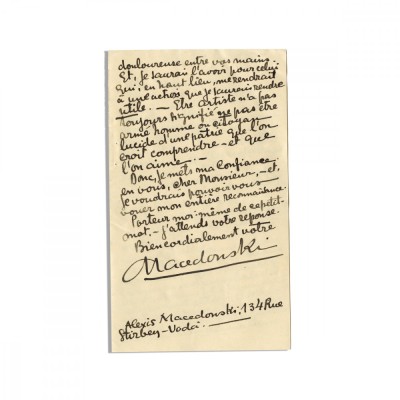 douloureuse entre vos mains.
Et, je saurai l'avoir pour celui
qui, en haut lieu, me rendrait
à une action que je saurais rendre
utile. — Être artiste n'a pas
toujours signifié ne pas être
armé homme ou citoyen
lucide d'une patrie que l'on
croit comprendre — et que
l'on aime. —
Donc, je mets ma confiance
en vous, cher Monsieur, — et,
je voudrais pouvoir vous
vouer mon entière reconnaissance.
Porteur moi-même de ce petit
mot. — j'attends votre réponse.
Bien cordialement votre
Macedonski
Alexis Macedonski, 134 Rue
Stirbey-Voda. —